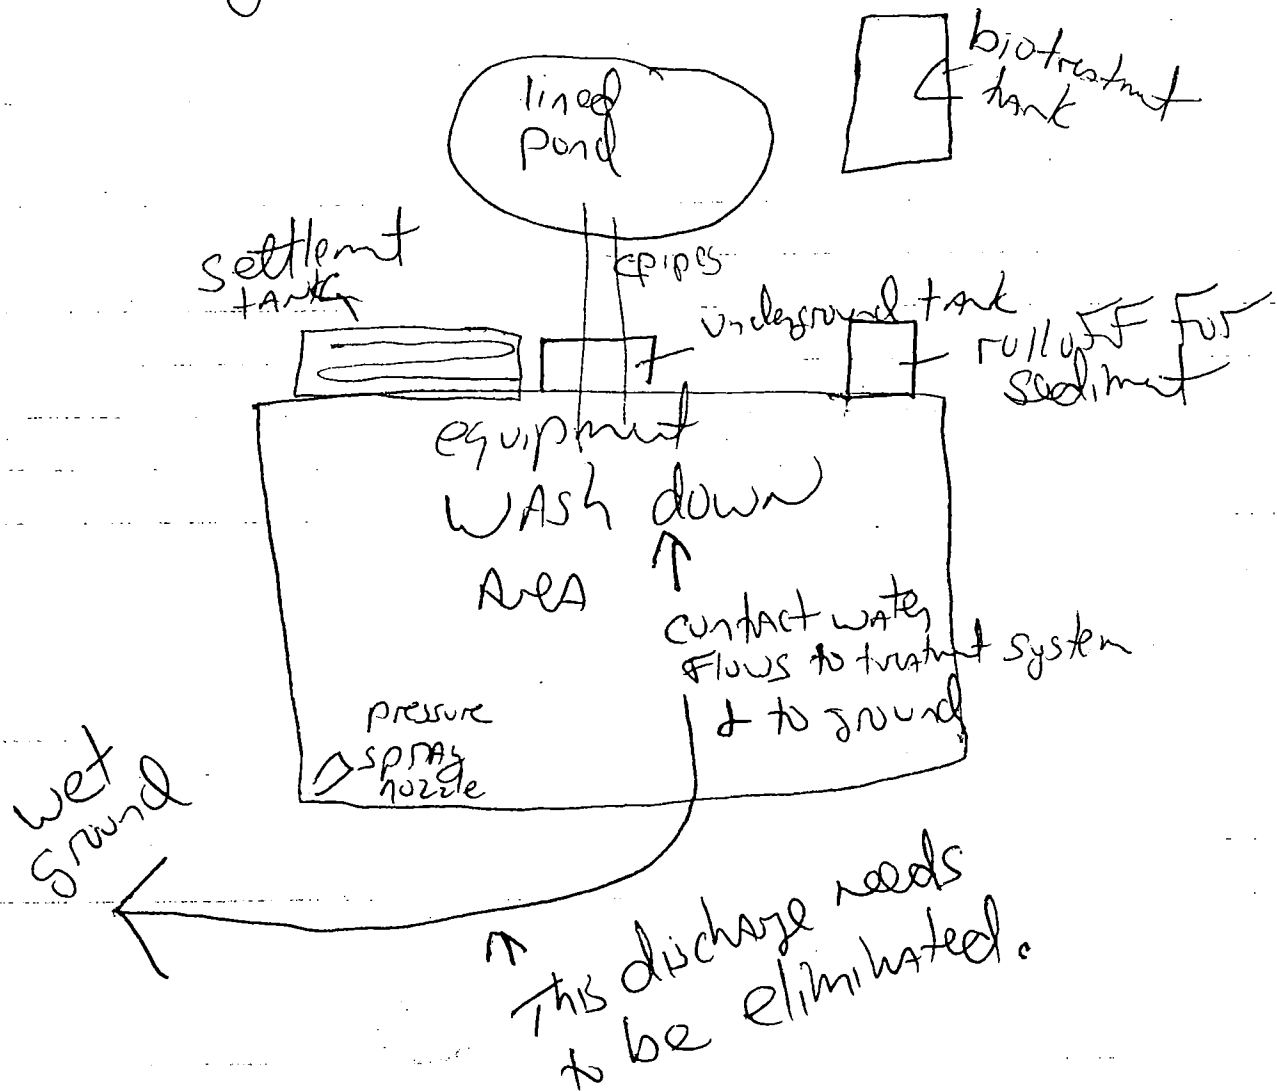 lined
pond
biotreatmut
tank
settlemt
tank
pipes
underground tank
rolloff for
sediment
equipment
wash down
Area
contact water
flows to treatmnt system
& to ground
pressure
spray
nozzle
wet
ground
This discharge needs
to be eliminated.